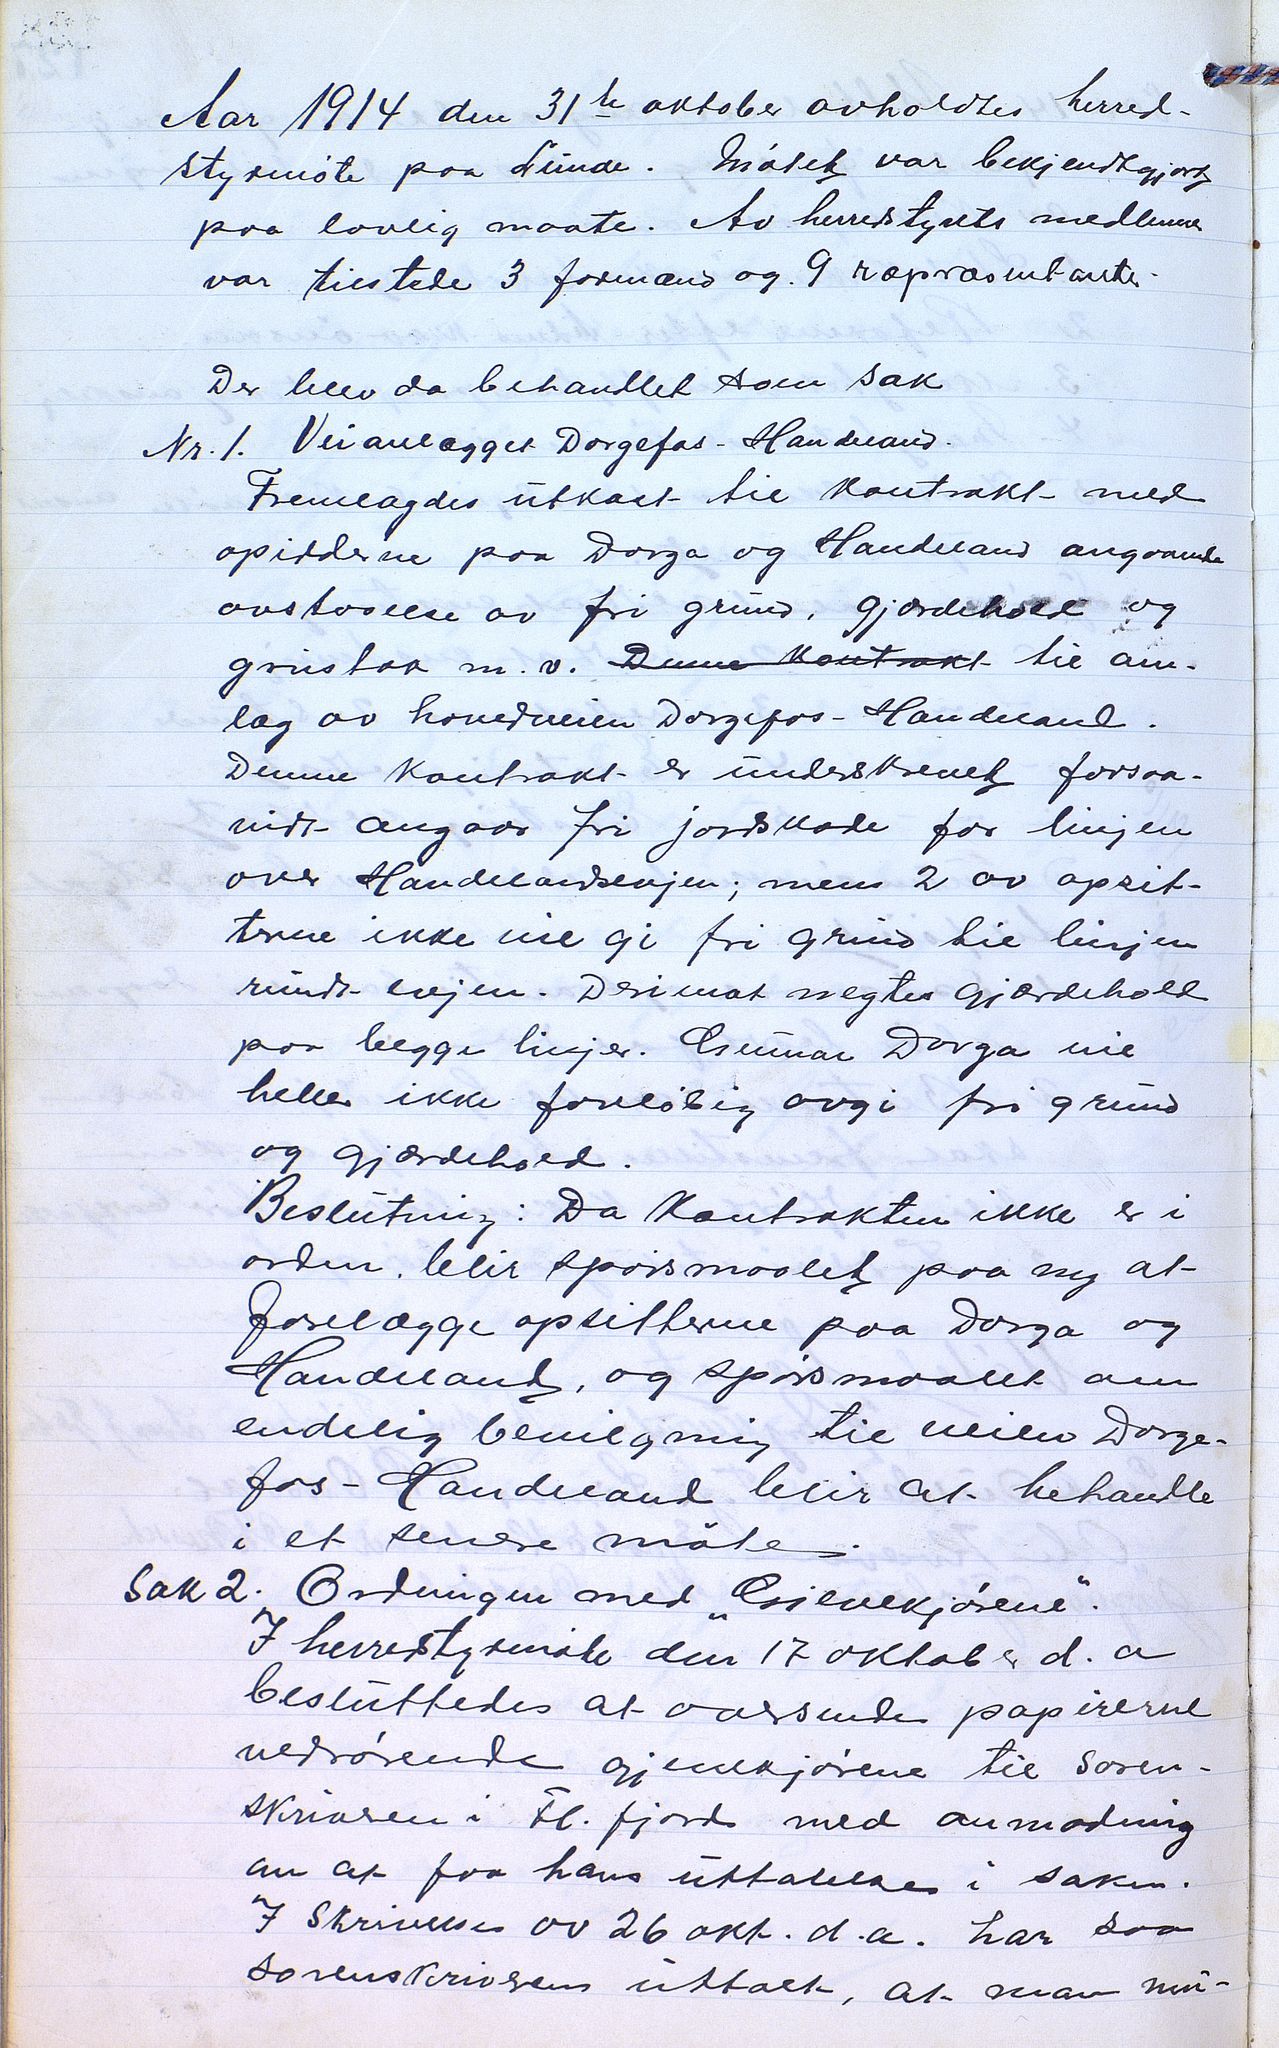 Aar 1914 den 31te oktober avholdtes herred-
styrmöte paa Lunde. Mötet var bekjendtgjort
paa lovlig maate. Av herredstyrets medlemmer
var tilstede 3 formænd og 9 ræpræsentanter.
Der blev da behandlet som sak
Nr. 1. Veianlægget Dorgefos - Handeland.
Fremlagdes utkast til kontrakt med
opsidderne paa Dorga og Handeland angaaende
avstaaelse av fri grund, gjærdehold og
grustak m. v. Denne kontrakt til an-
læg av hovedveien Dorgefos - Handeland.
Denne kontrakt er underskrevet forsaa-
vidt angaar fri jordskade for linjen
over Handelandsengjen; mens 2 av opsit-
terne ikke vil gi fri grund til linjen
rundt engjen. Derimot negtes gjærdehold
paa begge linjer. Gunnar Dorga vil
heller ikke foreløbig avgi fri grund
og gjærdehold.
Beslutning: Da kontrakten ikke er i
orden, blir spørsmaalet paa ny at
forelægge opsitterne paa Dorga og
Handeland, og spørsmaalet om
endelig bevilgning til veien Dorge-
fos - Handeland blir at behandle
i et senere möte.
Sak 2. Ordningen med "Gjenvekjörene".
I herredstyrmöte den 17 oktober d. a
besluttedes at oversende papirerne
vedrörende gjenvekjörene til soren-
skriveren i Fl. fjord med anmodning
om at faa hans uttalelse i saken.
I skrivelse av 26 okt. d. a. har saa
sorenskriveren uttalt, at man nu-